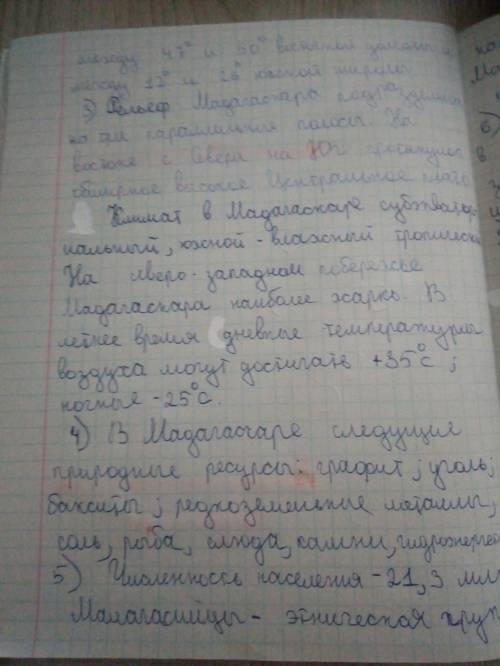 между 47° и 50° восточной долготы и
между 12° и 26° южной широты
3) Рельеф Мадагаскара
на три параллельные полосы. На
востоке с Севера на Юг протянулось
обширное высокое Центральное плато
Климат в Мадагаскаре субэкватор-
иальный, южной - влажный тропическ
На северо-западном побережье
Мадагаскара наиболее жарко. В
летнее время дневные температуры
воздуха могут достигать +35°C;
ночные -25°C.
4) В Мадагаскаре следущие
природные ресурсы: графит; уголь;
бокситы; редкоземельные металлы;
соль, рыба, слюда, камни, гидроэнерге
5) Численность населения - 21,3 мил
Малагасийцы - этническая груп